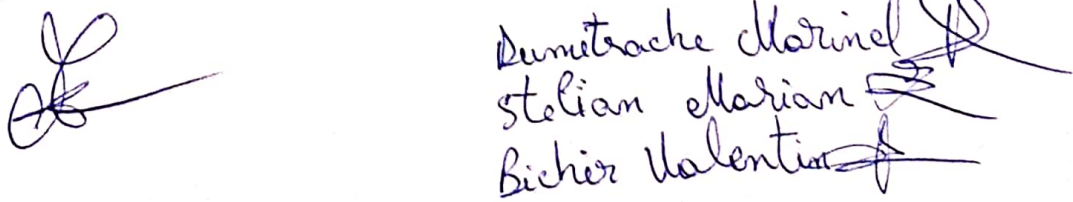 Dumitrache Marinel
Stelian Marian
Bichir Valentin